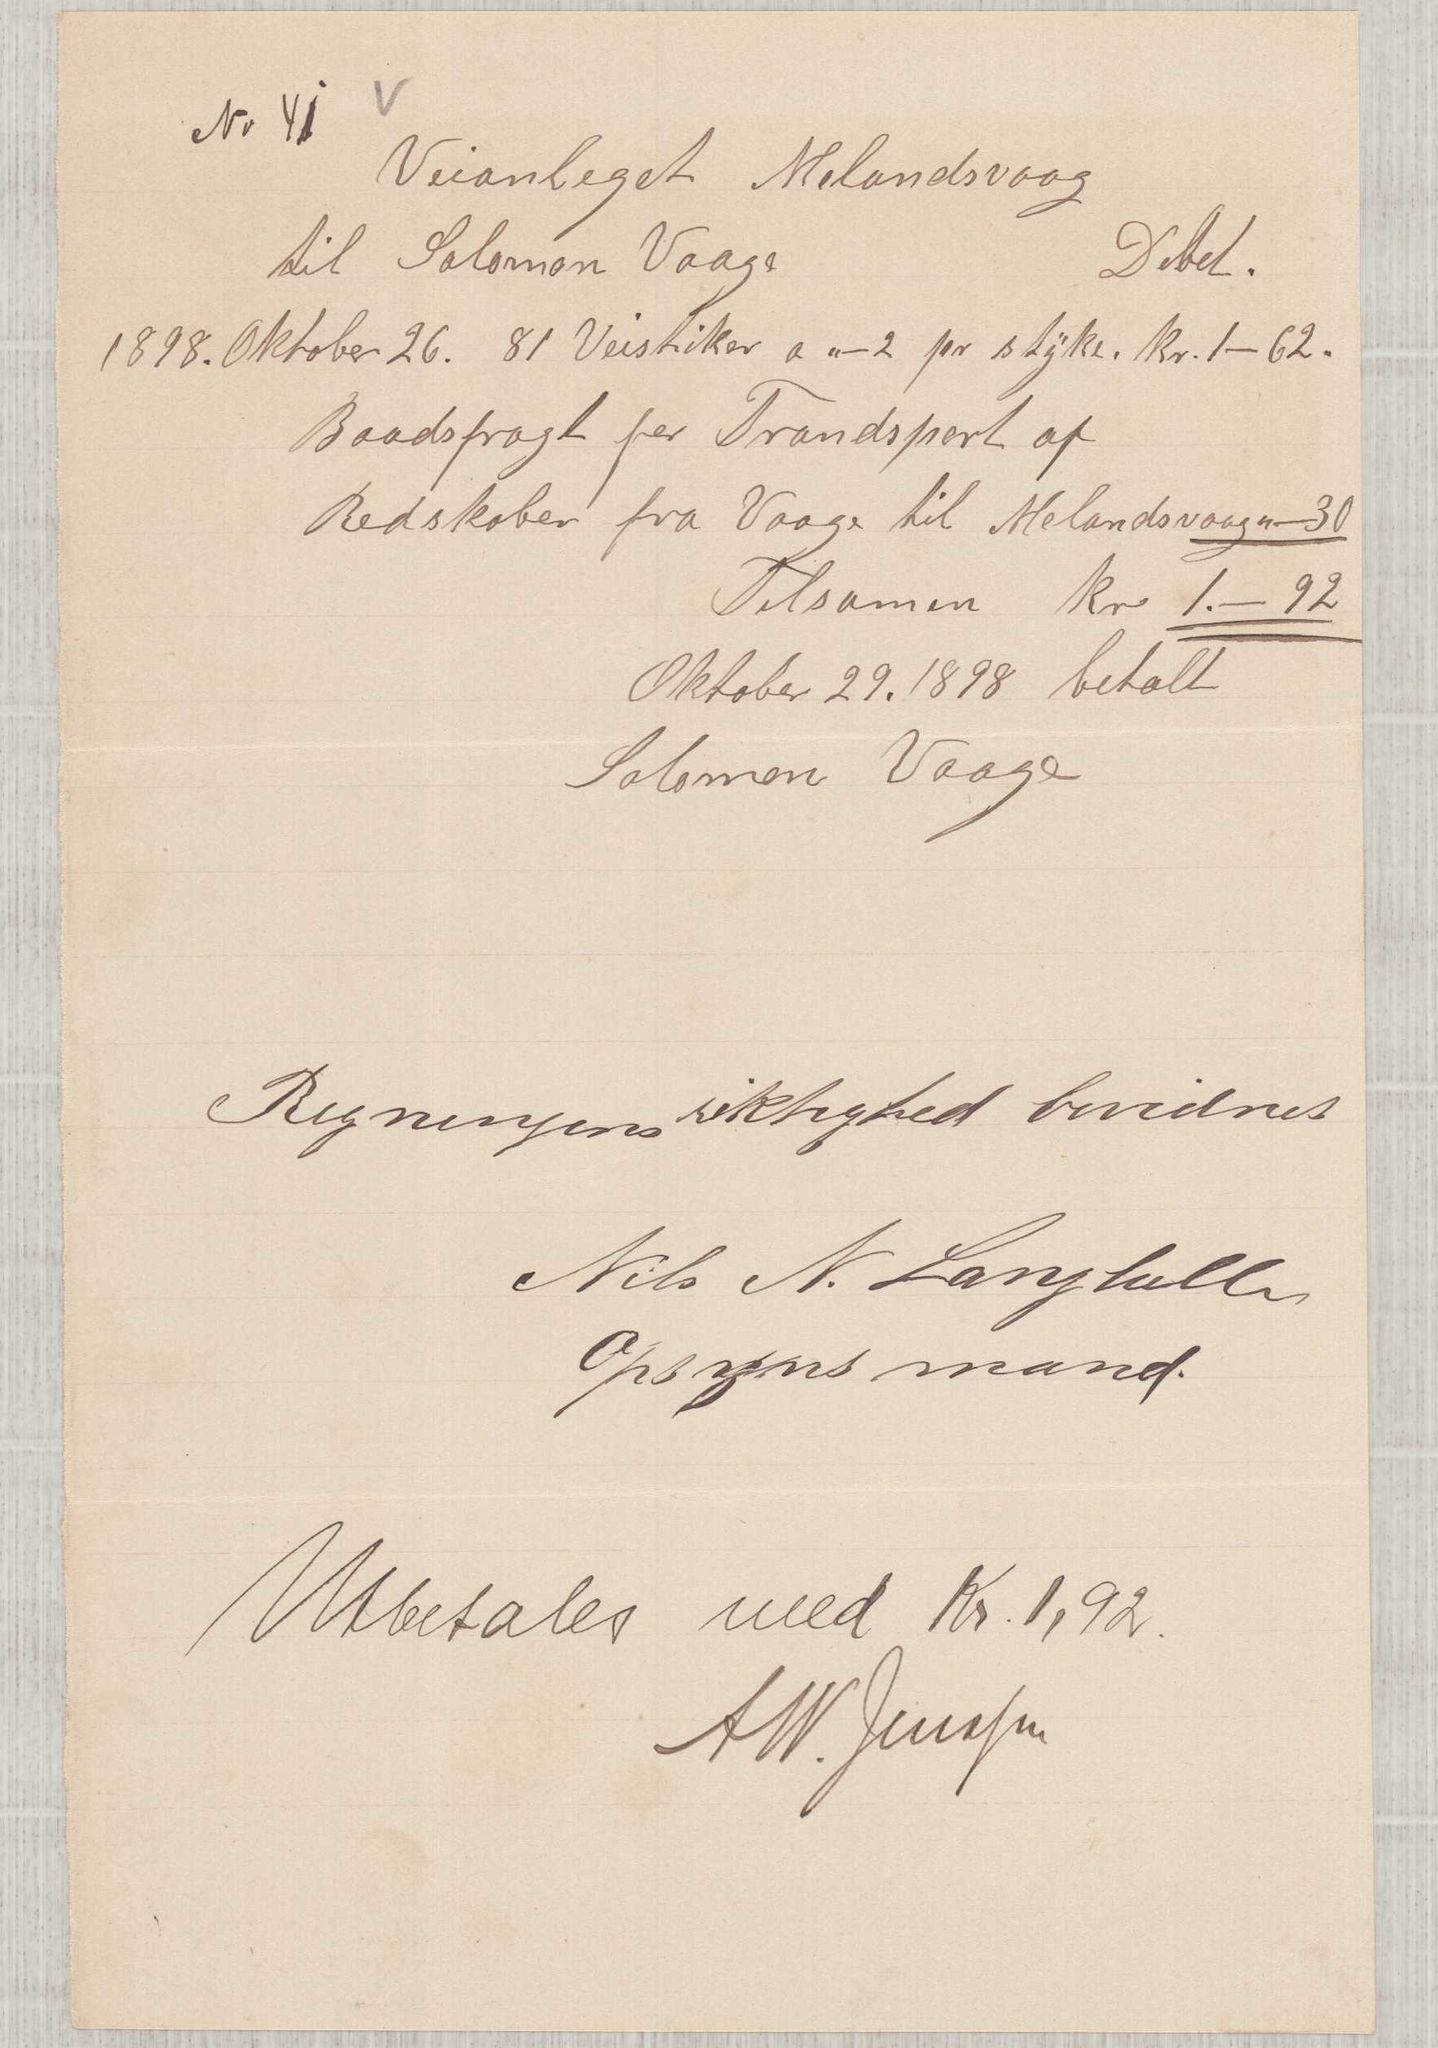 No 41 V
Veianleget Melandsvaag
til Salomon Vaage Debet.
1898. Oktober 26. 81 Veistiker a "-2 pr styke. kr. 1-62.
Baadsfragt for Trandsport af
Redskaber fra Vaage til Melandsvaag "-30
Tilsamen kr 1.-92
Oktober 29. 1898 betalt
Salomon Vaage
Regningens riktighed bevidnes
Nils N. Langballe
Opsyns mand.
Utbetales med Kr. 1,92.
AW. Jenssen